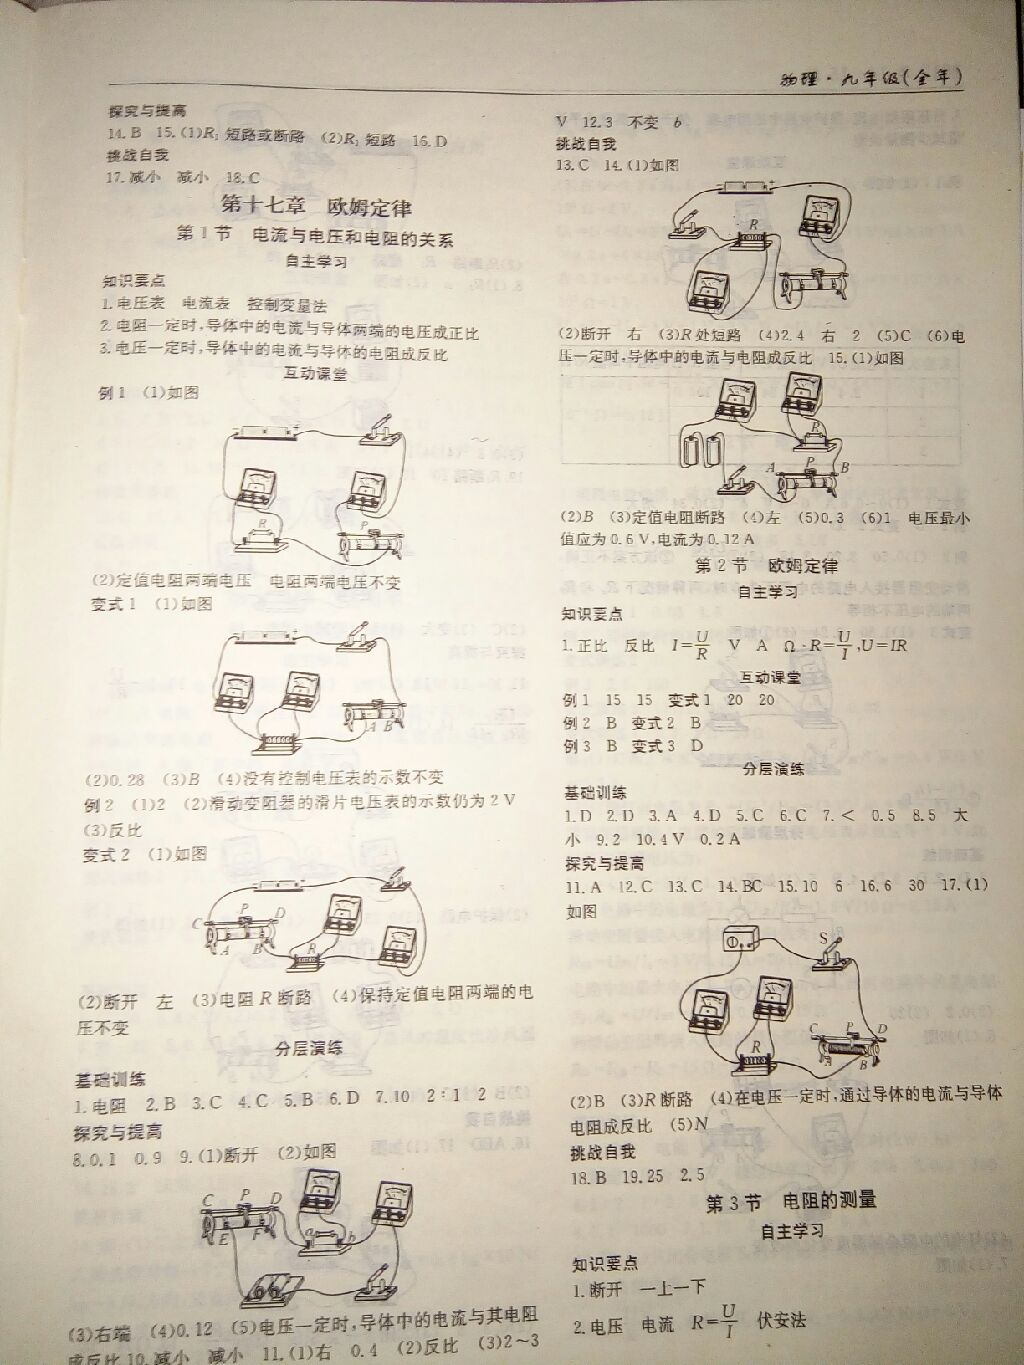 物理·九年级(全年)
探究与提高
14.B 15.(1)R₁短路或断路 (2)R₁短路 16.D
挑战自我
17.减小 减小 18.C
第十七章 欧姆定律
第1节 电流与电压和电阻的关系
自主学习
知识要点
1.电压表 电流表 控制变量法
2.电阻一定时,导体中的电流与导体两端的电压成正比
3.电压一定时,导体中的电流与导体的电阻成反比
互动课堂
例1 (1)如图
R P
(2)定值电阻两端电压 电阻两端电压不变
变式1 (1)如图
A B
(2)0.28 (3)B (4)没有控制电压表的示数不变
例2 (1)2 (2)滑动变阻器的滑片电压表的示数仍为2V
(3)反比
变式2 (1)如图
C P D
A B R
(2)断开 左 (3)电阻R断路 (4)保持定值电阻两端的电
压不变
分层演练
基础训练
1.电阻 2.B 3.C 4.C 5.B 6.D 7.10 2:1 2
探究与提高
8.0.1 0.9 9.(1)断开 (2)如图
C P D
E F a b
(3)右端 (4)0.12 (5)电压一定时,导体中的电流与其电阻
成反比 10.减小 减小 11.(1)右 0.4 (2)反比 (3)2~3
V 12.3 不变 6
挑战自我
13.C 14.(1)如图
R
(2)断开 右 (3)R处短路 (4)2.4 右 2 (5)C (6)电
压一定时,导体中的电流与电阻成反比 15.(1)如图
R
A P B
(2)B (3)定值电阻断路 (4)左 (5)0.3 (6)1 电压最小
值应为0.6V,电流为0.12A
第2节 欧姆定律
自主学习
知识要点
1.正比 反比 I=U/R V A Ω R=U/I,U=IR
互动课堂
例1 15 15 变式1 20 20
例2 B 变式2 B
例3 B 变式3 D
分层演练
基础训练
1.D 2.D 3.A 4.D 5.C 6.C 7.< 0.5 8.5 大
小 9.2 10.4V 0.2A
探究与提高
11.A 12.C 13.C 14.BC 15.10 6 16.6 30 17.(1)
如图
S
C P D
R A B
(2)B (3)R断路 (4)在电压一定时,通过导体的电流与导体
电阻成反比 (5)N
挑战自我
18.B 19.25 2.5
第3节 电阻的测量
自主学习
知识要点
1.断开 一上一下
2.电压 电流 R=U/I 伏安法